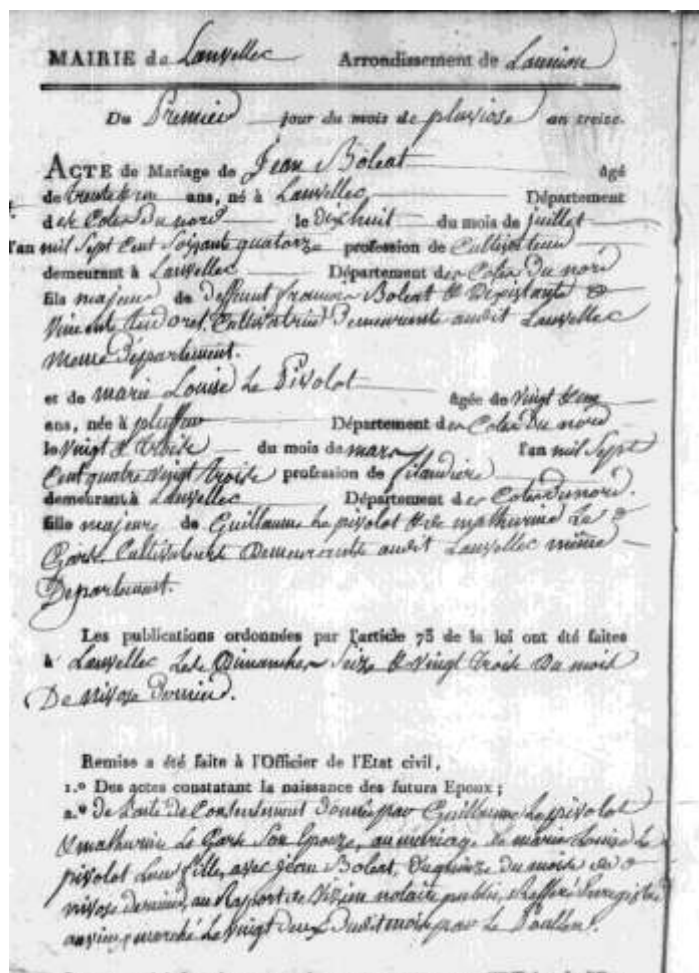 MAIRIE de Lanvellec Arrondissement de Lannion
Du Premier jour du mois de pluviose an treize.
ACTE de Mariage de Jean Boleat âgé
de trente ans, né à Lanvellec Département
des Cotes du nord le dix huit du mois de juillet
l'an mil Sept Cent Soixante quatorze profession de Cultivateur
demeurant à Lanvellec Département des Cotes du nord
fils majeur de deffunt François Boleat & D'Existante
Vincente Cultivatrice Demeurante audit Lanvellec
meme Département.
et de marie Louise Le Pivolot âgée de vingt & un
ans, née à pluffur Département des Cotes Du nord
le vingt & trois du mois de mars l'an mil Sept
Cent quatre vingt trois profession de filandiere
demeurant à Lanvellec Département des Cotes du nord.
fille majeure de Guillaume Le pivolot & de mathurine Le
Gars Cultivateurs Demeurants audit Lanvellec même
Département.
Les publications ordonnées par l'article 75 de la loi ont été faites
à Lanvellec Les Dimanches Seize & Vingt trois Du mois
De nivose Dernier.
Remise a été faite à l'Officier de l'Etat civil,
1.° Des actes constatant la naissance des futurs Epoux ;
2.° De L'acte de Consentement Donné par Guillaume Le pivolot
& mathurine Le Gars Son Epouze, au mariage de marie Louise Le
pivolot Leur fille, avec Jean Boleat, Du quinze du mois de
nivose dernier, au Raport de notaire public, Enregistré
au vieux marché Le vingt deux Dudit mois par Le